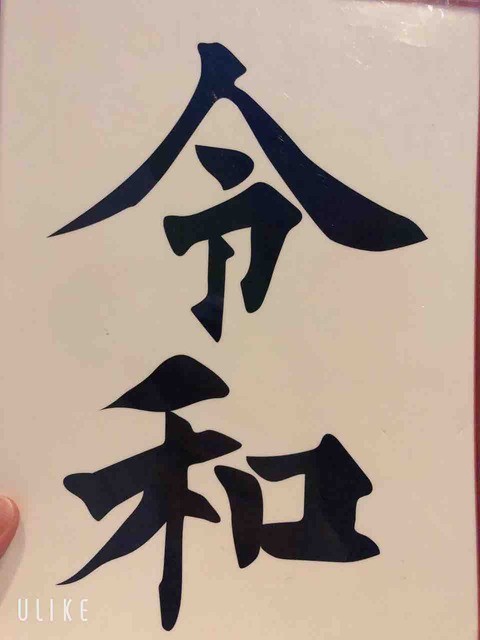 令和
ULIKE